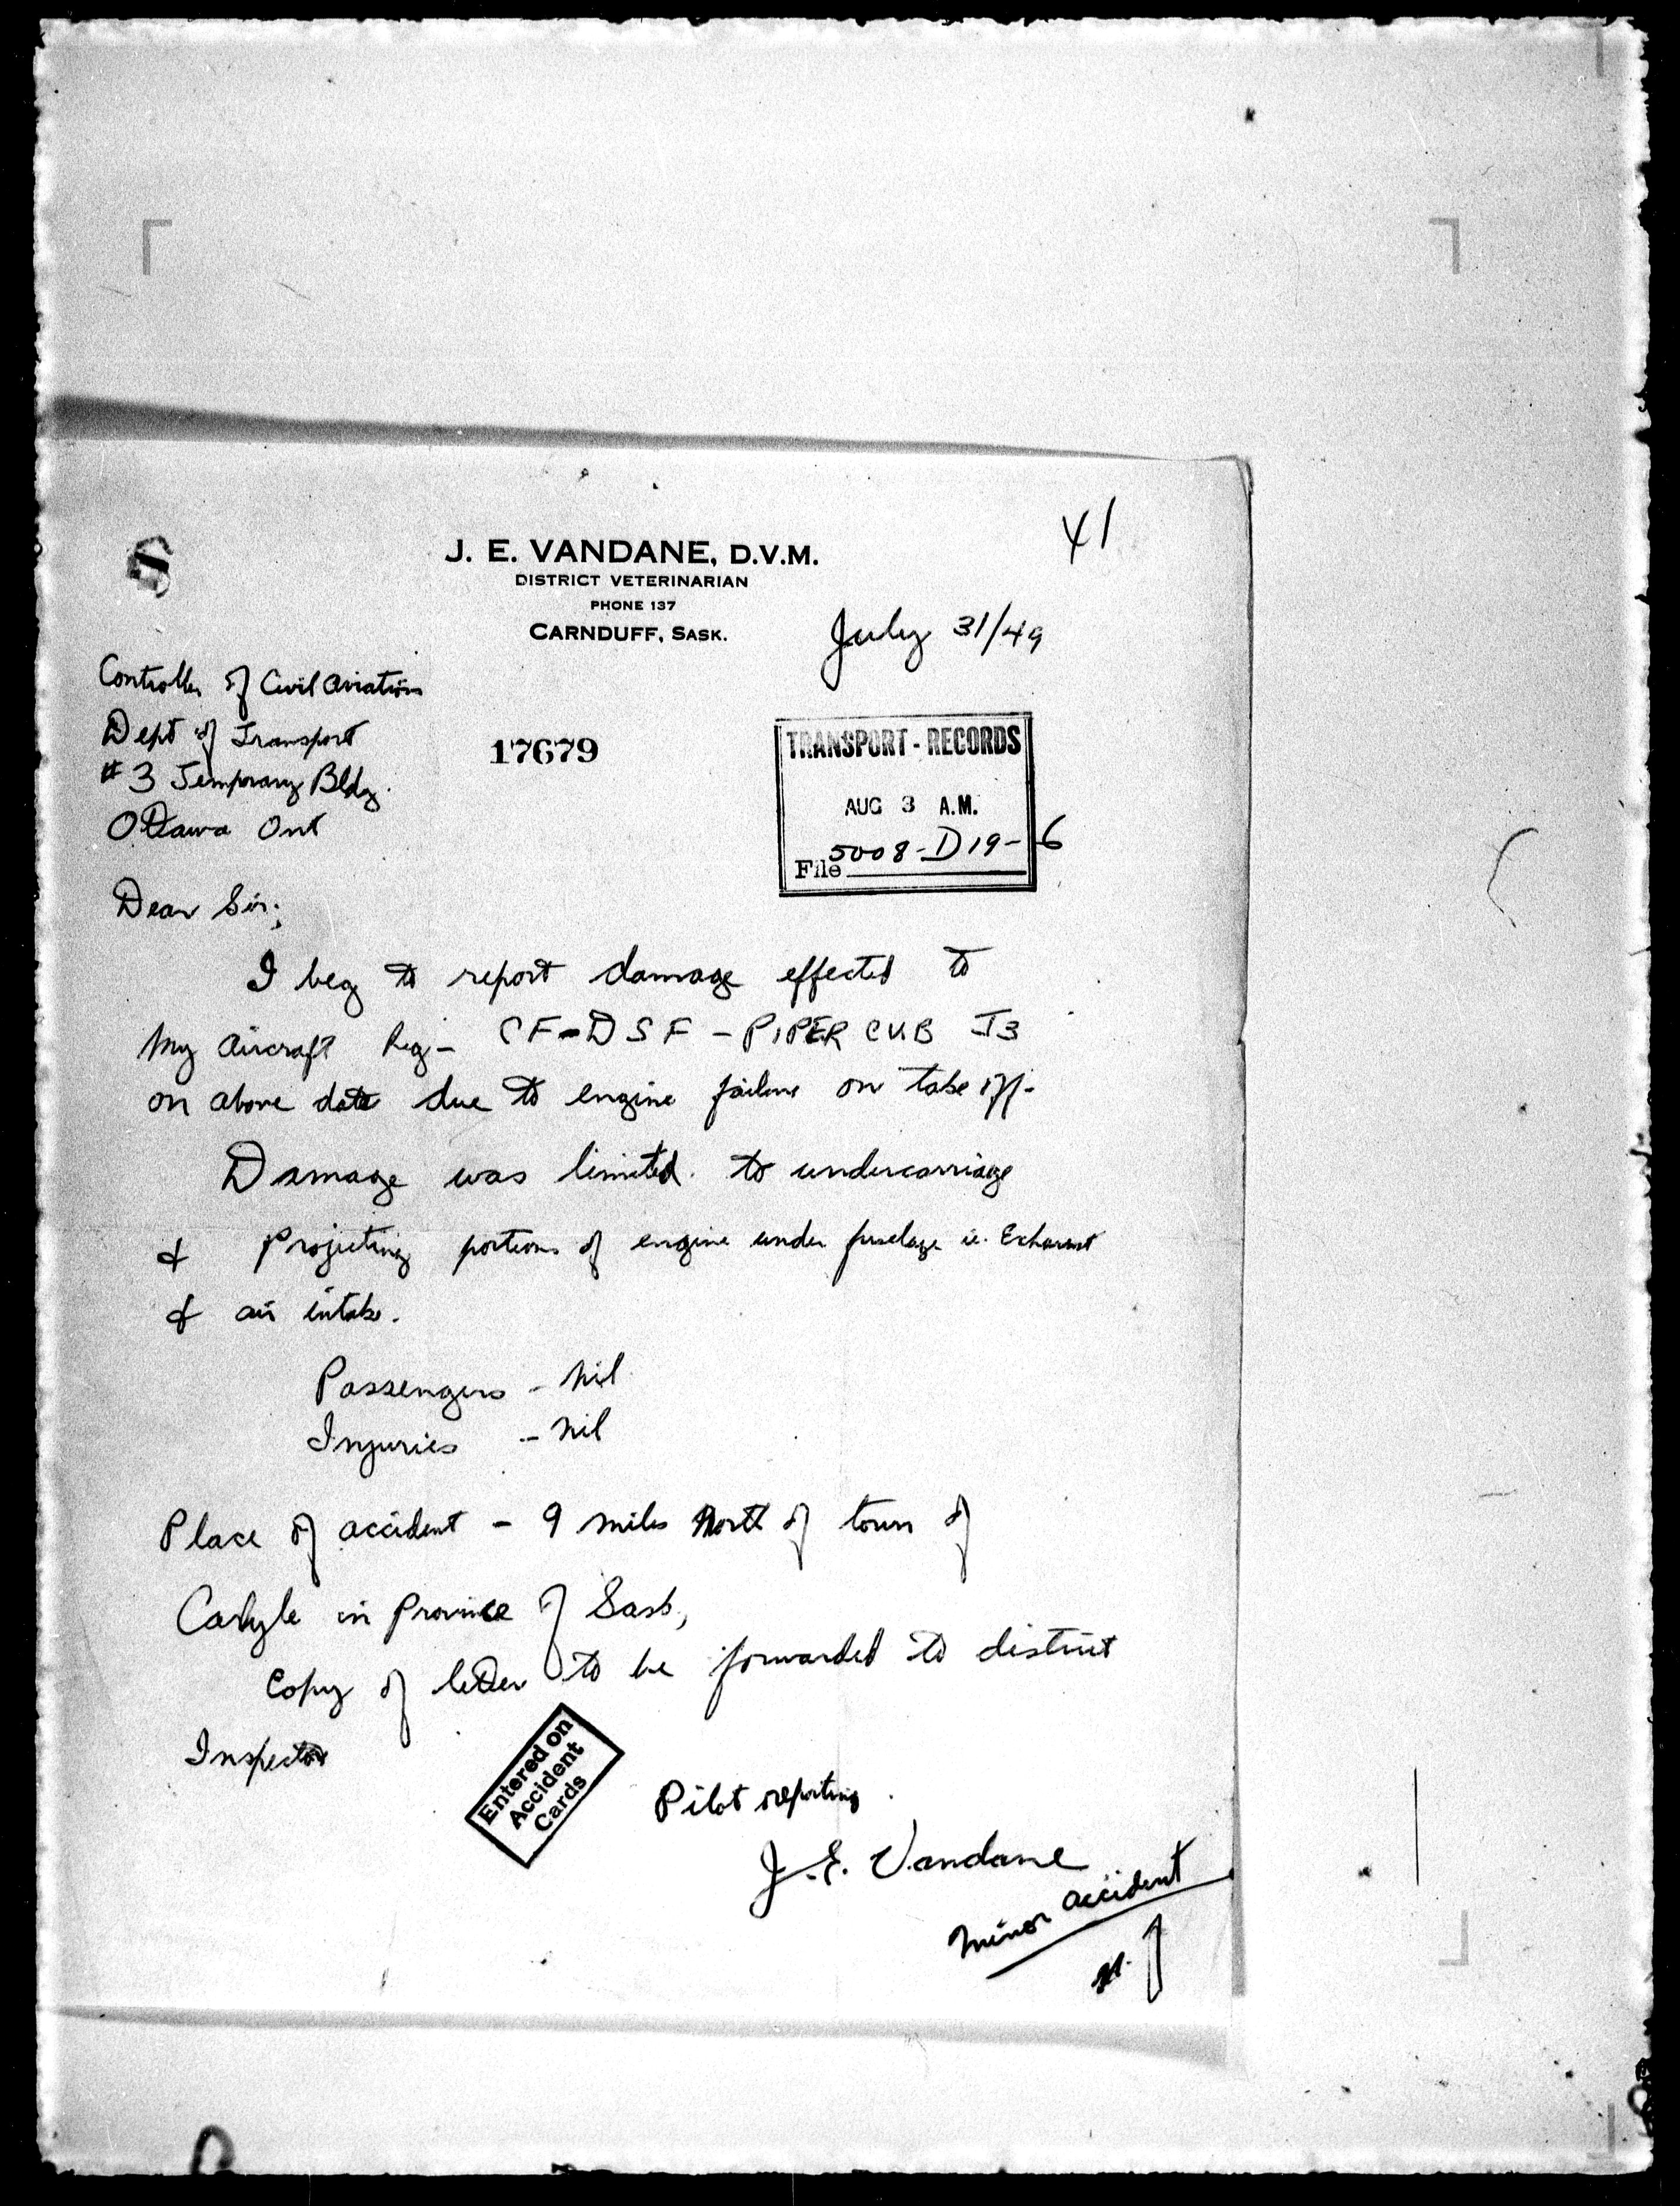 41
J. E. VANDANE, D.V.M.
DISTRICT VETERINARIAN
PHONE 137
CARNDUFF, SASK.
July 31/49
Controller of Civil Aviation
Dept of Transport
# 3 Temporary Bldg.
Ottawa Ont
17679
TRANSPORT - RECORDS
AUG 3 A.M.
File 5008-D19-6
Dear Sir;
I beg to report damage effected to
my aircraft Reg- CF-DSF - PIPER CUB J3
on above date due to engine failure on take off.
Damage was limited to undercarriage
& projecting portions of engine under fuselage ie. Exhaust
& air intake.
Passengers - nil
Injuries - nil
Place of accident - 9 miles North of town of
Carlyle in province of Sask,
Copy of letter to be forwarded to district
Inspector
Entered on
Accident
Cards
Pilot reporting.
J. E. Vandane
Minor accident